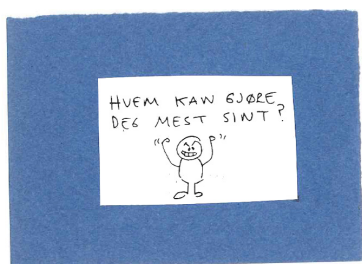 HVEM KAN GJØRE
DEG MEST SINT?